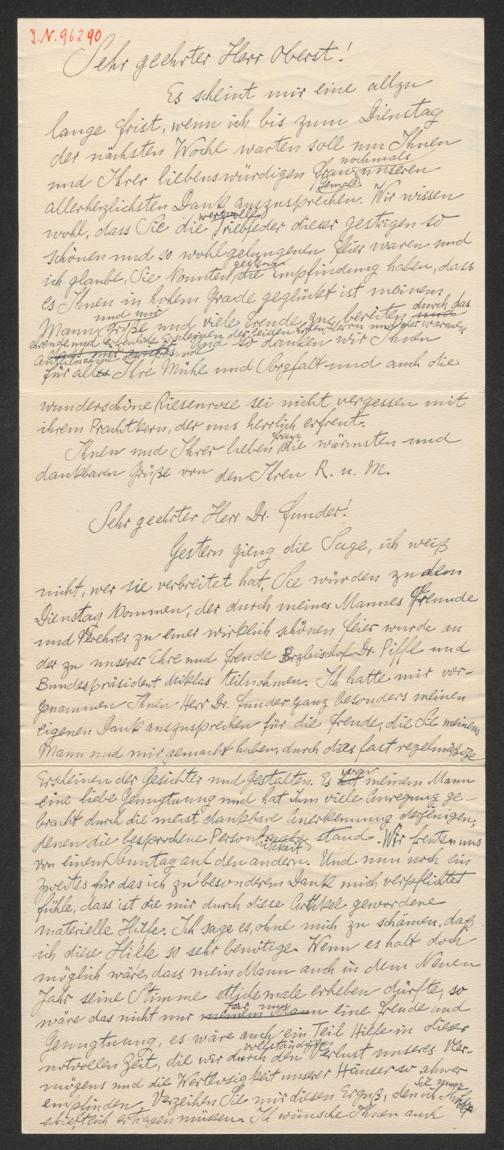 J.N. 96290
Sehr geehrter Herr Oberst!
Es scheint mir eine allzu
lange Frist, wenn ich bis zum Dienstag
der nächsten Woche warten soll um Ihnen
nochmals
und Ihrer liebenswürdigen Frau unseren
allerherzlichsten Dank auszusprechen. Wir wissen
wertvolle
wohl, dass Sie die Triebfeder dieser gestrigen so
schönen und so wohlgelungenen Feier waren und
gestern
ich glaube, Sie konnten die Empfindung haben, dass
es Ihnen in hohem Grade geglückt ist meinem
und mir
Mann große und viele Freude zu bereiten durch das
ehrende und erfreuliche Erscheinen der beiden hohen Herrn und der warmen
Anteilnahme. Und so danken wir Ihnen
für alle Ihre Mühe und Sorgfalt und auch die
wunderschöne Riesenrose sei nicht vergessen mit
ihrem Prachtkern, der uns herrlich erfreut.
Frau
Ihnen und Ihrer lieben die wärmsten und
dankbaren Grüße von den Ihren R. u. M.
Sehr geehrter Herr Dr. Funder!
Gestern gieng die Sage, ich weiß
nicht, wer sie verbreitet hat, Sie würden zu dem
Dienstag kommen, der durch meines Mannes Freunde
und Verehrer zu einer wirklich schönen Feier wurde an
der zu unserer Ehre und Freude Erzbischof Dr. Piffl und
Bundespräsident Miklas teilnahmen. Ich hatte mir vor-
genommen Ihnen Herr Dr. Funder ganz besonders meinen
eigenen Dank auszusprechen für die Freude, die Sie meinem
Mann und mir gemacht haben, durch das fast regelmäßige
Erscheinen der Gesichter und Gestalten. Es war meinem Mann
eine liebe Genugtuung und hat ihm viele Anregung ge-
bracht durch die meist dankbare Anerkennung derjenigen,
denen die besprochene Persönlichkeit stand. Wir freuten uns
von einem Sonntag auf den andern. Und nun noch ein
zweites für das ich zu besonderem Dank mich verpflichtet
fühle, dass ist die mir durch diese Artikel gewordene
materielle Hilfe. Ich sage es, ohne mich zu schämen, daß
ich diese Hilfe so sehr benötige. Wenn es halt doch
möglich wäre, dass mein Mann auch in dem Neuen
Jahr seine Stimme etliche male erheben dürfte, so
für uns
wäre das nicht nur eine Freude und
Genugtuung, es wäre auch ein Teil Hilfe in dieser
vollständigen
notvollen Zeit, die wir durch den Verlust unseres Ver-
mögens und die Wertlosigkeit unserer Häuser so schwer
empfinden. Verzeihen Sie mir diesen Erguß, den ich
Sie nun
schriftlich ertragen müssen. Ich wünsche Ihnen auch